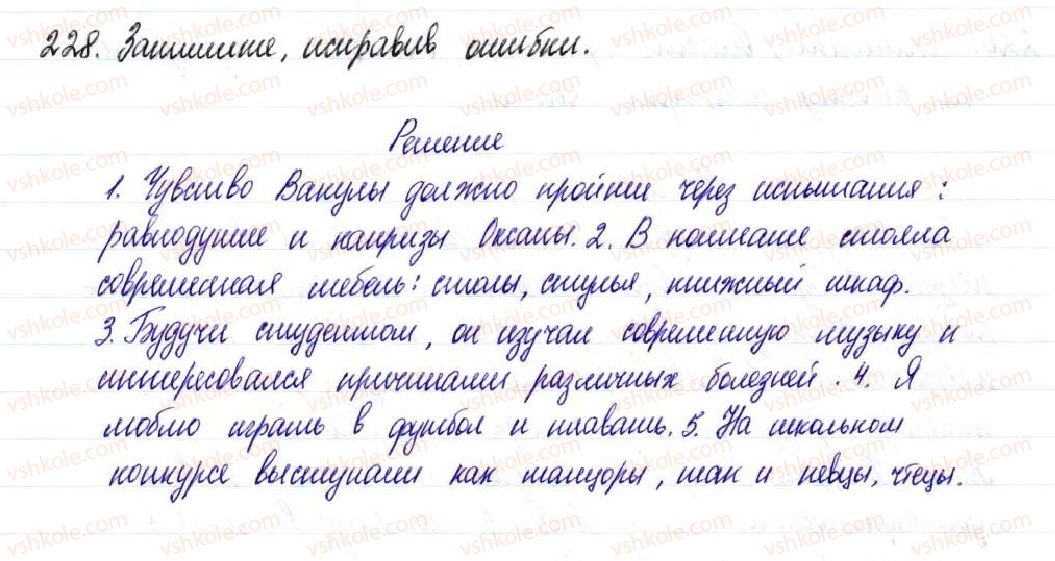 228. Запишите, исправив ошибки.
Решение
1. Чувство Вакулы должно пройти через испытания:
равнодушие и капризы Оксаны. 2. В комнате стояла
современная мебель: столы, стулья, книжный шкаф.
3. Будучи студентом, он изучал современную музыку и
интересовался причинами различных болезней. 4. Я
люблю играть в футбол и плавать. 5. На школьном
конкурсе выступали как танцоры, так и певцы, чтецы.